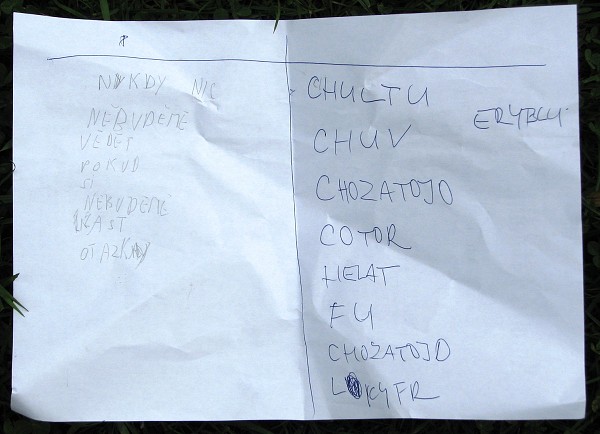 NIKDY NIC
NEBUDEME
VĚDĚT
POKUD
SI
NEBUDEME
KLÁST
OTÁZKY
CHULTU
ERYBCU
CHUV
CHOZATOJO
COTOR
HELAT
FU
CHOZATOJD
LOKYFR